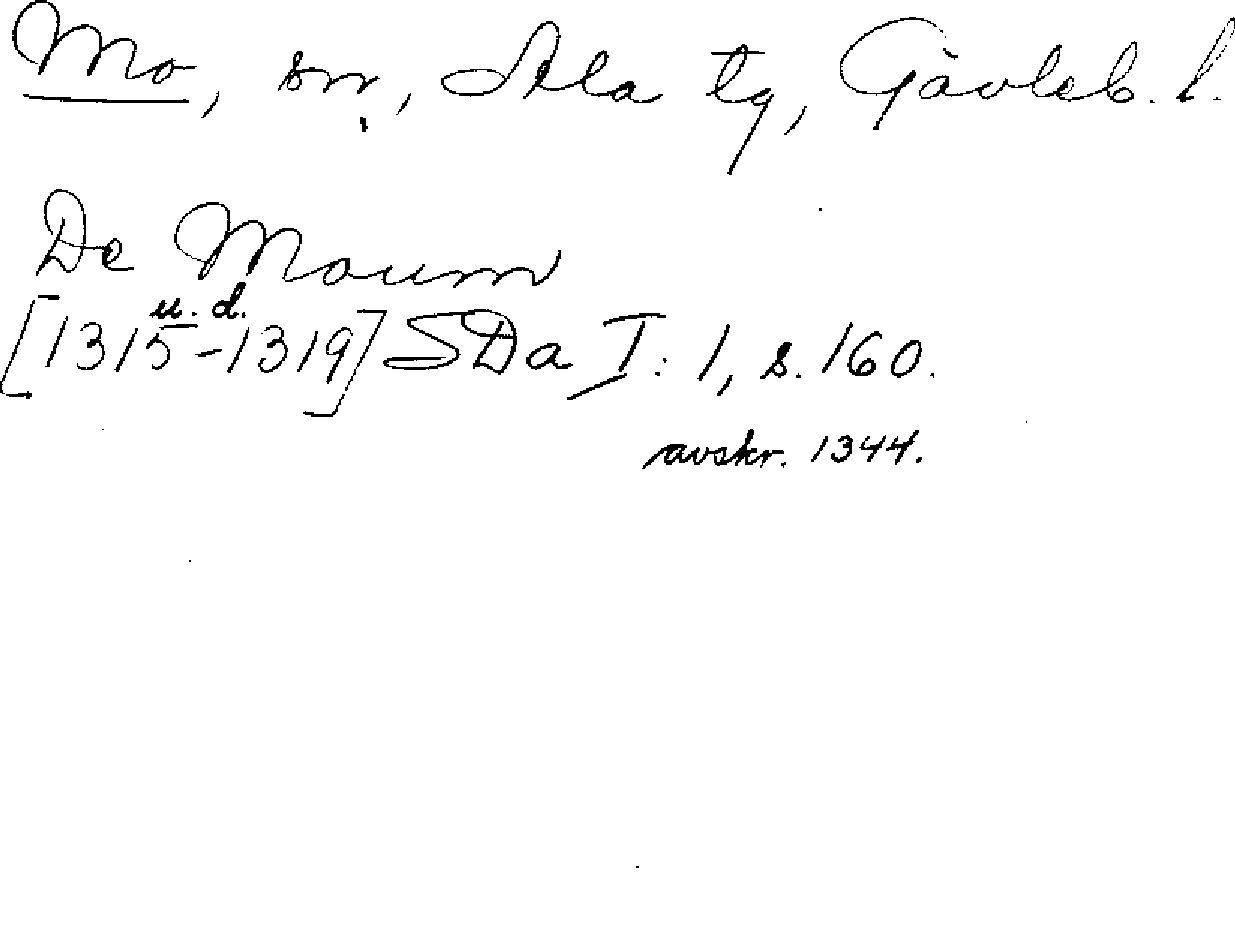 Mo, sn, Ala tg, Gävleb. l.
De Moum
u. d.
[1315-1319] SDa I: 1, s. 160.
avskr. 1344.